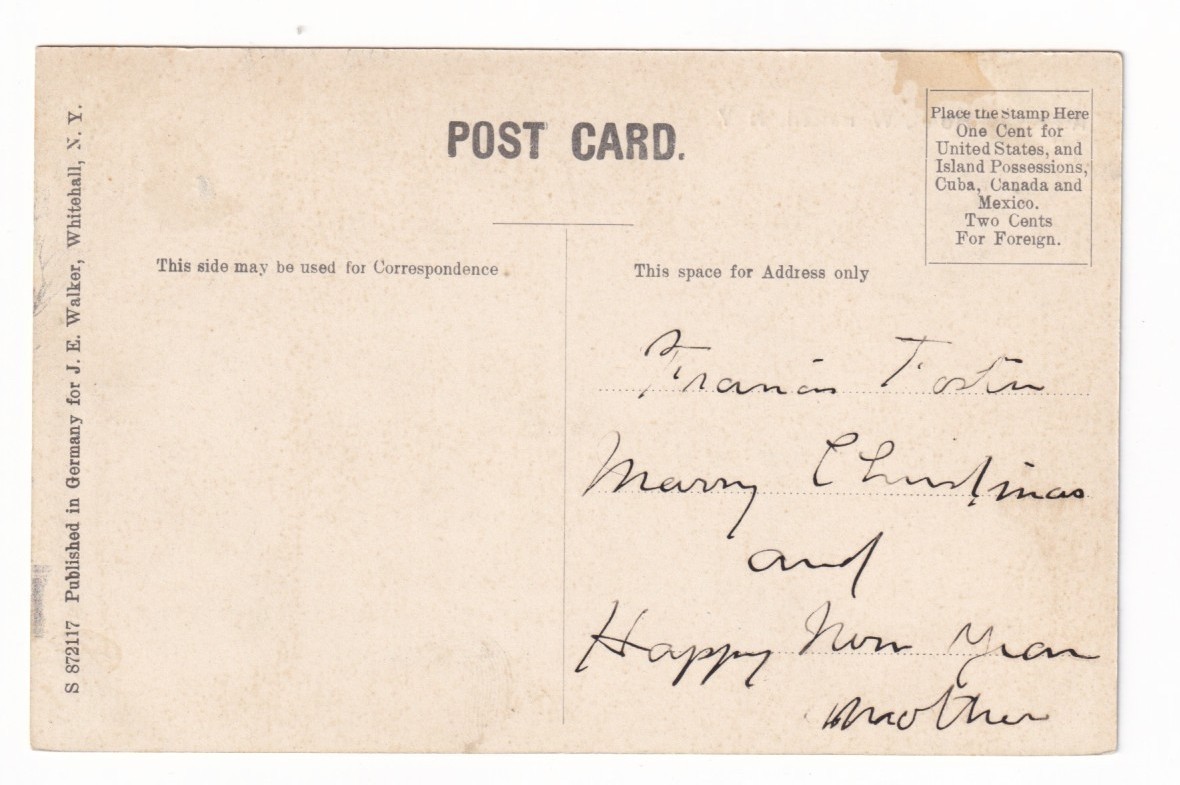 POST CARD.
Place the Stamp Here
One Cent for
United States, and
Island Possessions,
Cuba, Canada and
Mexico.
Two Cents
For Foreign.
This side may be used for Correspondence
This space for Address only
Francis Foster
Merry Christmas
and
Happy New Year
Mother
S 872117 Published in Germany for J. E. Walker, Whitehall, N. Y.